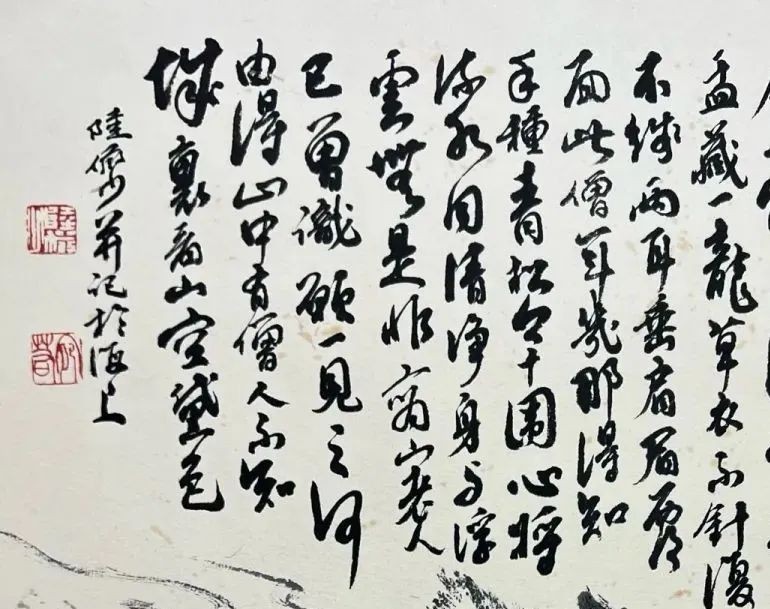 盂藏一龍草衣不針復
不綫兩耳垂肩眉覆
面此僧年幾那得知
手種青松今十圍心將
流水同清淨身與浮
雲無是非商山老人
已曾識願一見之何
由得山中有僧人不知
城裏看山空黛色
陸儼少并記於海上